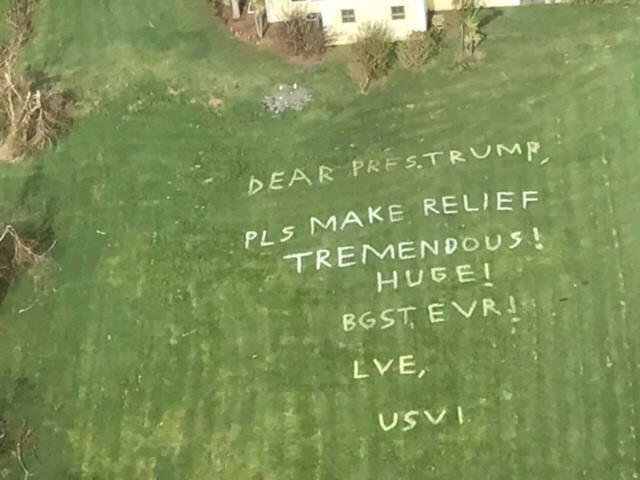 DEAR PRES.TRUMP,
PLS MAKE RELIEF
TREMENDOUS!
HUGE!
BGST EVR!
LVE,
USVI